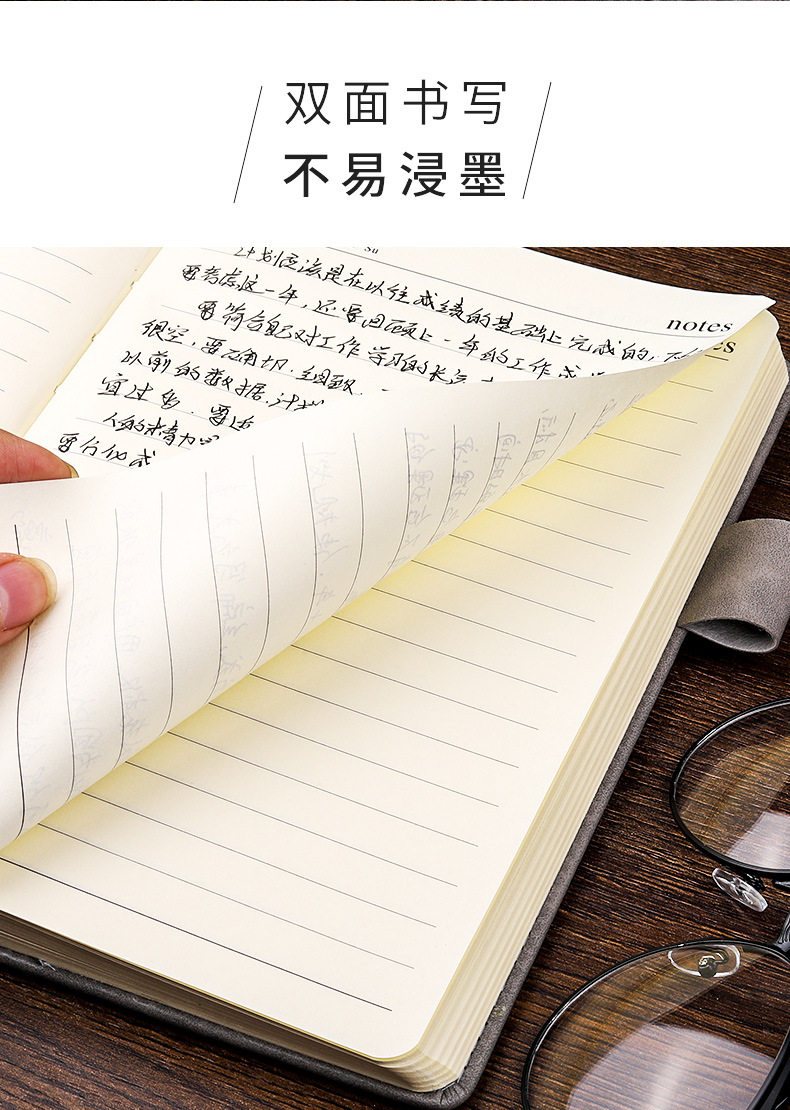 双面书写
不易浸墨
su
notes
es
计划应该是在以往成绩的基础上完成的,
要考虑这一年,还要回顾上一年的工作成
要符合自己对工作学习的长远
很空,要确切,细致,
以前的数据,计划
宜过多,要
人的精力
要行